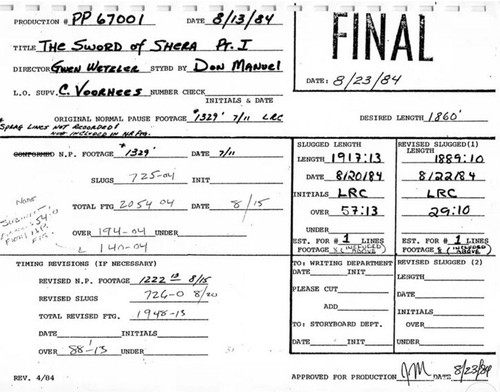 PRODUCTION # PP 67001 DATE 8/13/84
TITLE The Sword of Shera Pt. I
DIRECTOR Gwen Wetzler STYBD BY Don Manuel
L.O. SUPV. C. Voorhees NUMBER CHECK
INITIALS & DATE
FINAL
DATE: 8/23/84
ORIGINAL NORMAL PAUSE FOOTAGE *1329' 7/11 LRC
DESIRED LENGTH 1860'
*SPRAG LINES NOT RECORDED!
NOT INCLUDED IN N.P. Ftg.
CONFORMED N.P. FOOTAGE *1329' DATE 7/11
SLUGS 725-04 INIT
TOTAL FTG 2054 04 DATE 8/15
OVER 194-04 UNDER
140-04
NOTE
FROM N.P.
FTG.
SLUGGED LENGTH
LENGTH 1917:13
DATE 8/20/84
INITIALS LRC
OVER 57:13
UNDER
EST. FOR #1 LINES
FOOTAGE (INCLUDED ABOVE)
REVISED SLUGGED(1)
LENGTH 1889:10
DATE 8/22/84
INITIALS LRC
OVER 29:10
UNDER
EST. FOR #1 LINES
FOOTAGE (INCLUDED ABOVE)
TIMING REVISIONS (IF NECESSARY)
REVISED N.P. FOOTAGE 1222 13 8/15
REVISED SLUGS 726-0 8/20
TOTAL REVISED FTG. 1948-13
DATE INITIALS
OVER 88'-13 UNDER
TO: WRITING DEPARTMENT
DATE INIT
PLEASE CUT
ADD
TO: STORYBOARD DEPT.
DATE INIT
REVISED SLUGGED (2)
LENGTH
DATE
INITIALS
OVER
UNDER
REV. 4/84
APPROVED FOR PRODUCTION JM DATE 8/23/84